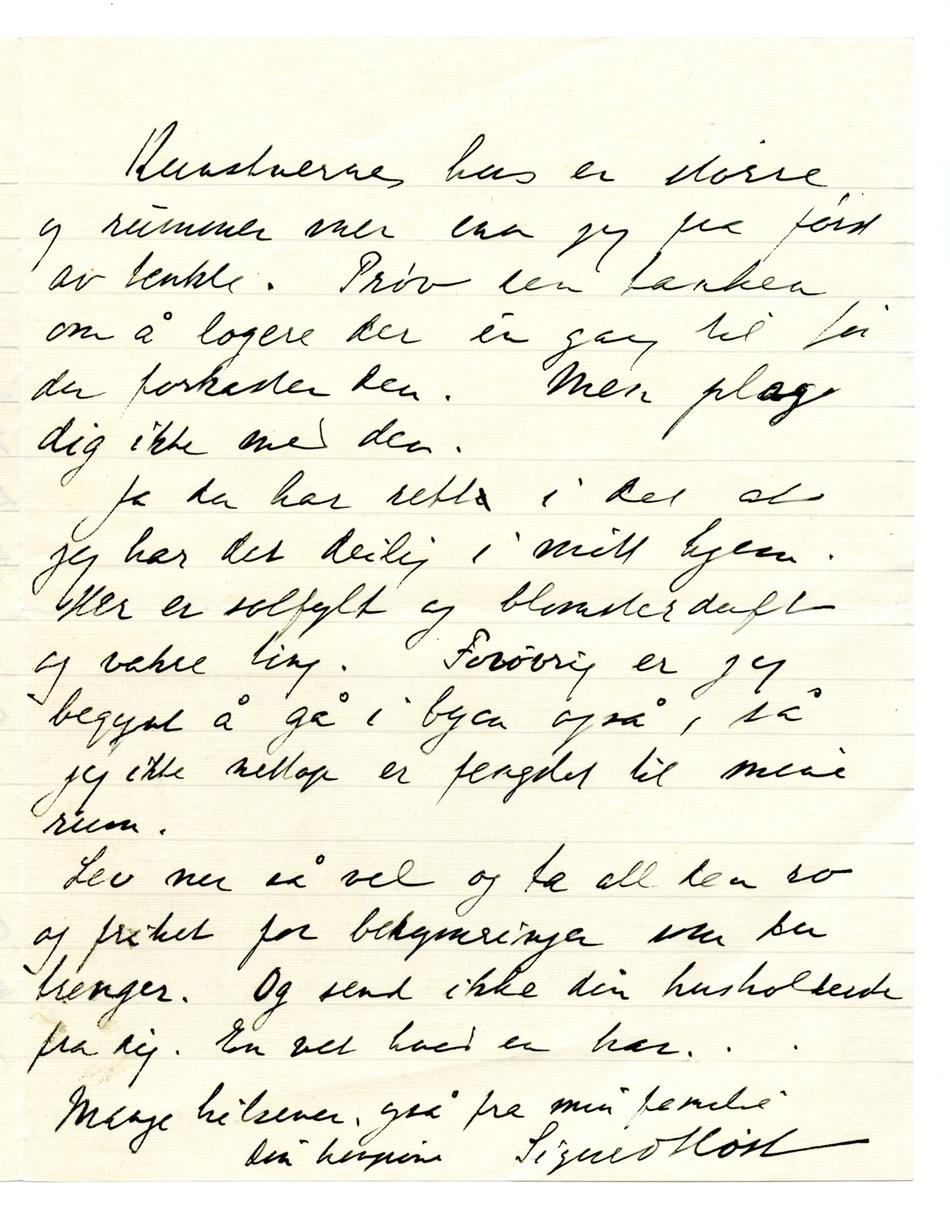 Kunstnernes hus er større
og rummer mer enn jeg fra først
av tenkte. Prøv den tanken
om å logere der én gang til før
du forkaster den. Men plag
dig ikke med den.
Ja du har rett i det at
jeg har det deilig i mitt hjem.
Her er solfylt og blomsterduft
og vakre ting. Forøvrig er jeg
begynt å gå i byen også, så
jeg ikke nettop er fengslet til mine
rum.
Lev nu så vel og ta all den ro
og frihet for bekymringer som du
trenger. Og send ikke din husholderske
fra dig. En vet hvad en har. . .
Mange hilsener, også fra min familie
din hengivne Signe Høst